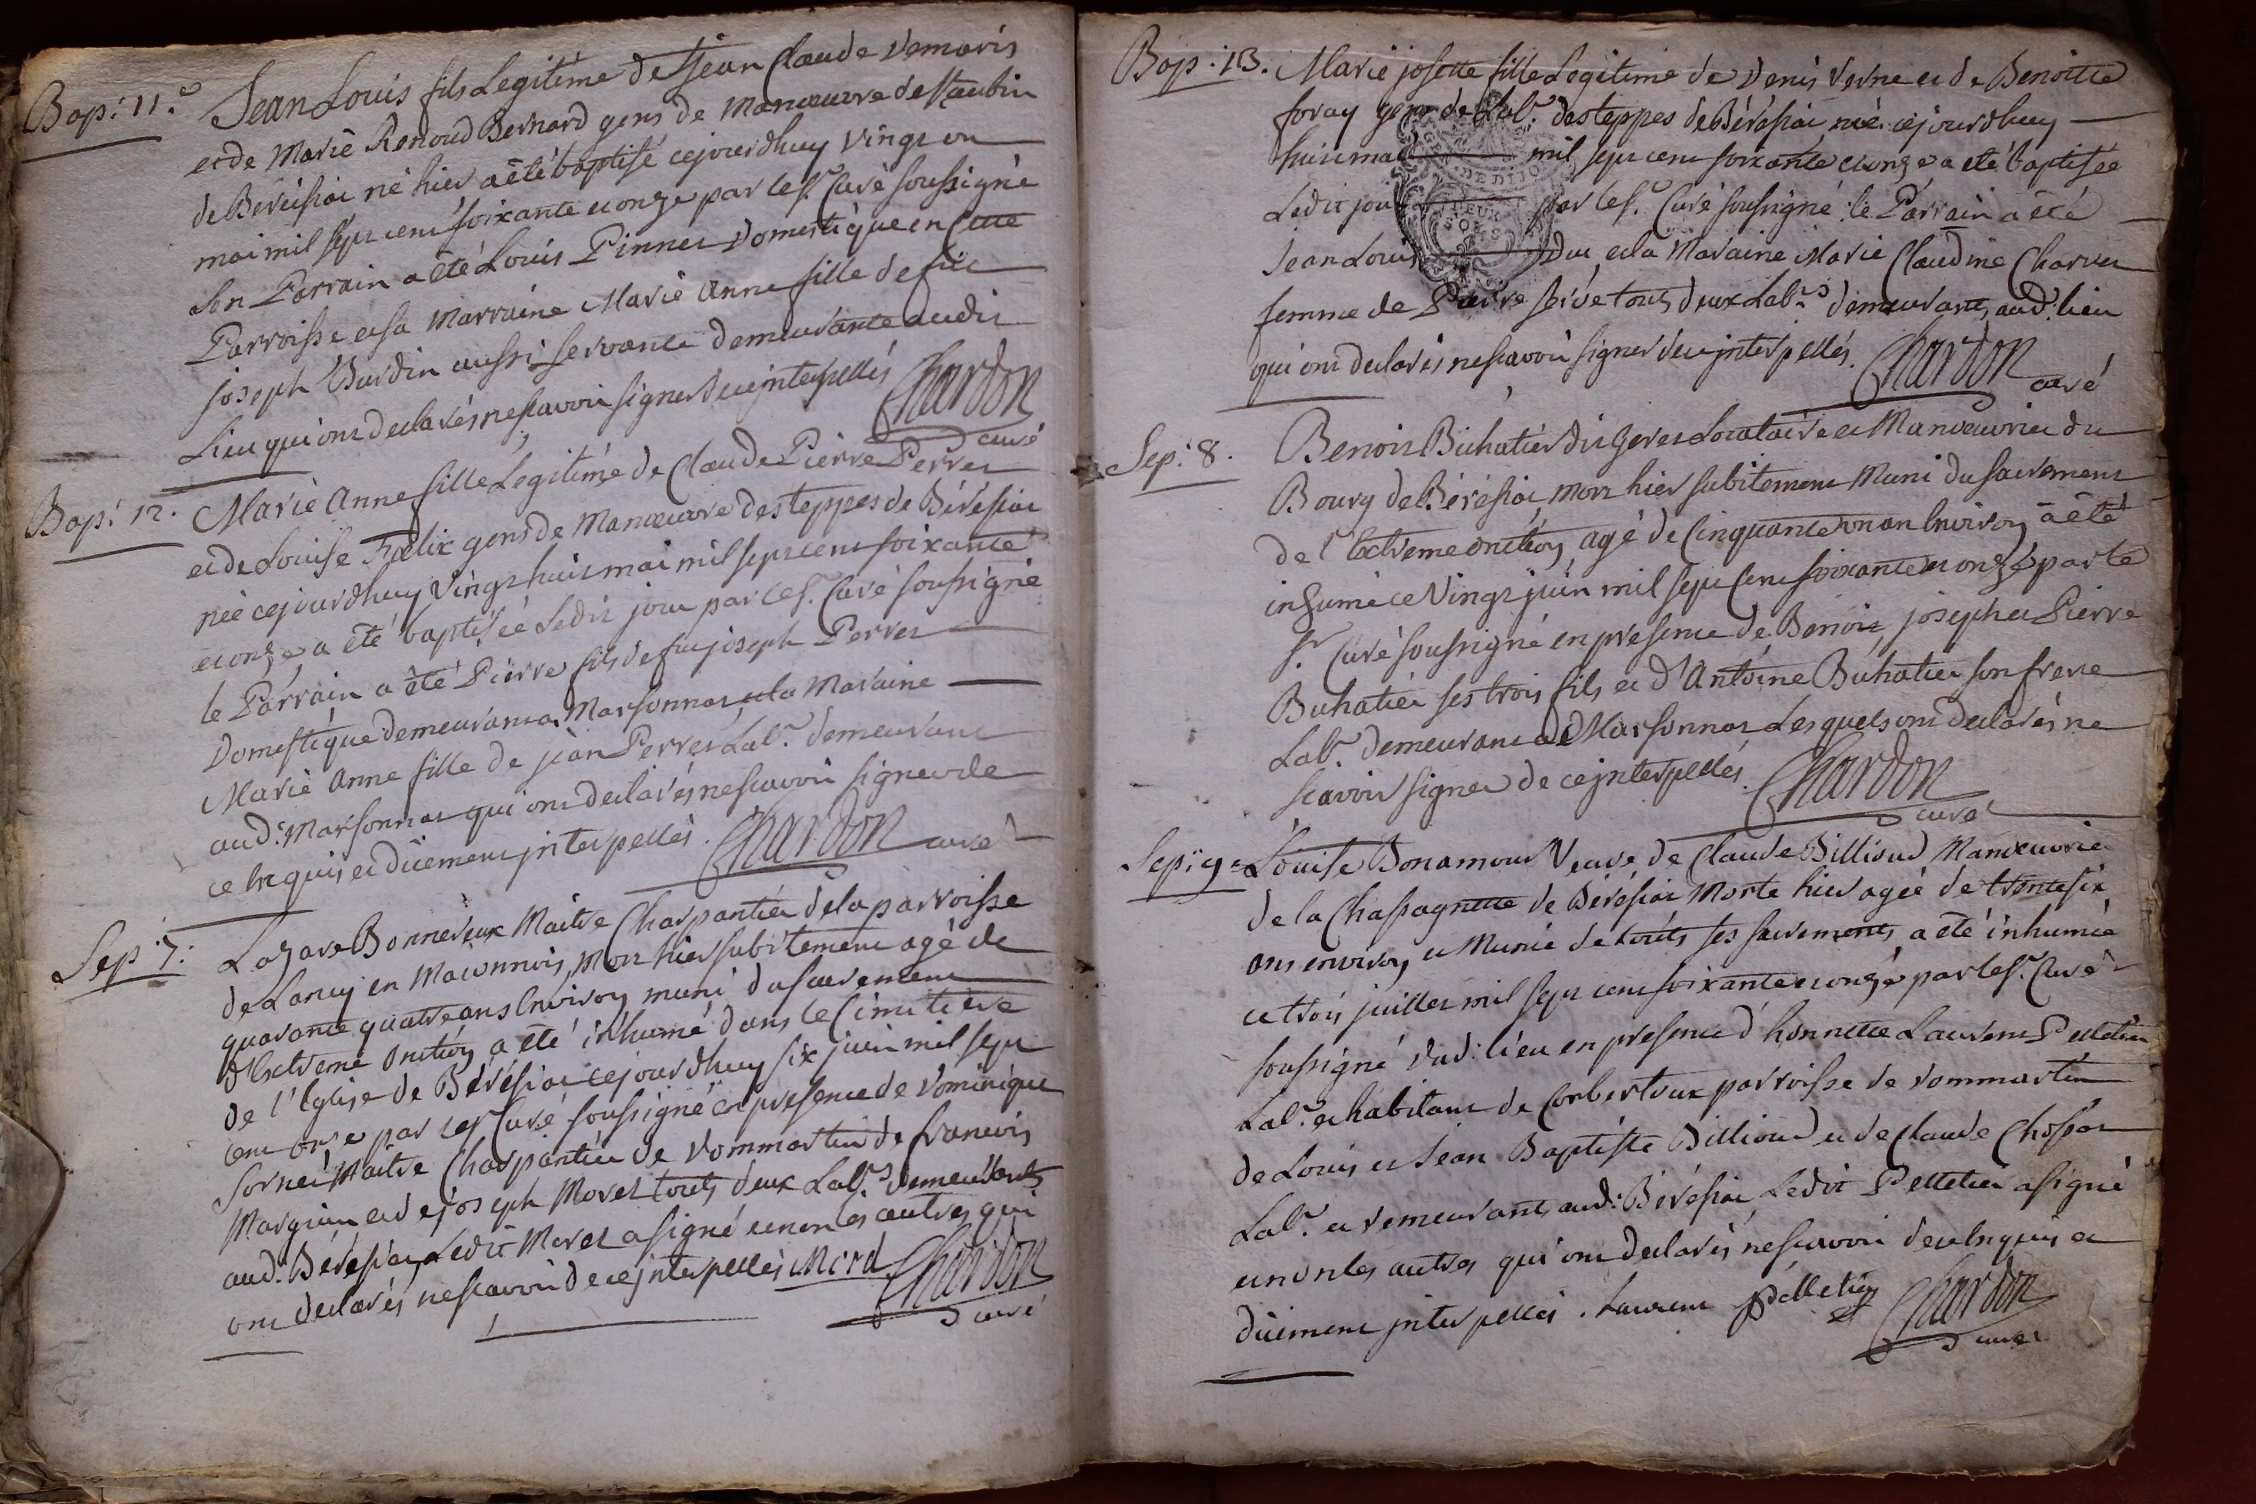 Bap: 11.e
Jean Louis fils Legitime de Jean Claude Demaris
et de Marie Renoud Bernard gens de Manœuvre de St aubin
de Béréisiat né hier a êté baptisé cejourdhuy vingt un
mai mil sept cent soixante et onze par le Sr. Curé soussigné
Son Parrain a êté Louis Pinner Domestique en Cette
Parroisse et sa Marraine Marie Anne fille de feu
Joseph Burdin aussi servante demeurante audit
Lieu qui ont declarés ne scavoir signer de ce jnterpellés Chardon
curé
Bap: 12.
Marie Anne fille Legitime de Claude Pierre Perret
et de Louise Fœlix gens de Manœuvre des teppes de Bérésiat
née cejourdhuy vingt huit mai mil sept cent soixante
et onze a êté baptisée Ledit jour par le Sr. Curé soussigné
le Parrain a êté Pierre fils de feu joseph Perret
Domestique demeurant a Marsonnas et la Maraine
Marie Anne fille de jean Perret Labr. demeurant
aud: Marsonnas qui ont declarés ne scavoir signer de
ce Enquis et düement jnterpellés. Chardon curé
Sep: 7:
Lazare Bonnereux Maitre Charpantier de la parroisse
de Lancy en Maconnois, Mort hier subitement agé de
quarante quatre ans Environ muni du sacrement
d'Extreme Onction a êté inhumé dans le Cimitière
de l'Eglise de Bérésiat cejourdhuy six juin mil sept
cent onze par le Sr Curé soussigné en presence de Dominique
Sornet Maitre Charpantier de Dommartin de francois
Marguin et de joseph Moret touts deux Labrs. demeurants
aud: Bérésiat, Ledit Moret a signé et non les autres qui
ont declarés ne scavoir de ce jnterpellés Mord Chardon
curé
Bap: 13.
Marie josette fille Legitime de Denis Verne et de Benoitte
foray gens de Labr. des teppes de Bérésiat née cejourdhuy
huit mai mil sept cent soixante et onze a êté baptisée
Ledit jour par le Sr. Curé soussigné: le Parrain a êté
Jean Louis Duc et la Maraine Marie Claudine Charvet
femme de Pierre Sérve touts deux Labrs. demeurants aud: lieu
qui ont declarés ne scavoir signer de ce jnterpellés. Chardon
curé
Sep: 8.
Benoit Buhatier dit Geret Locataire et Manœuvrier du
Bourg de Bérésiat, mort hier subitement Muni du sacrement
de l'Extreme onction agé de Cinquante un an Environ a êté
inhumé ce Vingt juin mil sept Cent soixante et onze par le
Sr. Curé soussigné en presence de Benoit, joseph et Pierre
Buhatier ses trois fils et d'Antoine Buhatier son frere
Labr. demeurant a Marsonnas Lesquels ont declarés ne
scavoir signer de ce jnterpellés. Chardon
curé
Sep: 9=
Louise Bonamour Veuve de Claude Billioud Manœuvrier
de la Chassagnette de Bérésiat Morte hier agée de trente six
ans environ et Munie de touts ses sacrements a êté inhumée
ce trois juillet mil sept cent soixante et onze par le Sr. Curé
soussigné dud: lieu en presence d'honnette Laurent Pelletier
Labr. et habitant de Corbertoux parroisse de Dommartin
de Louis et Jean Baptiste Billioud et de Claude Chossat
Labr. et demeurants aud: Bérésiat, Ledit Pelletier a signé
et non les autres qui ont declarés ne scavoir de ce Enquis et
düement jnterpellés. Laurent Pelletier Chardon
curé